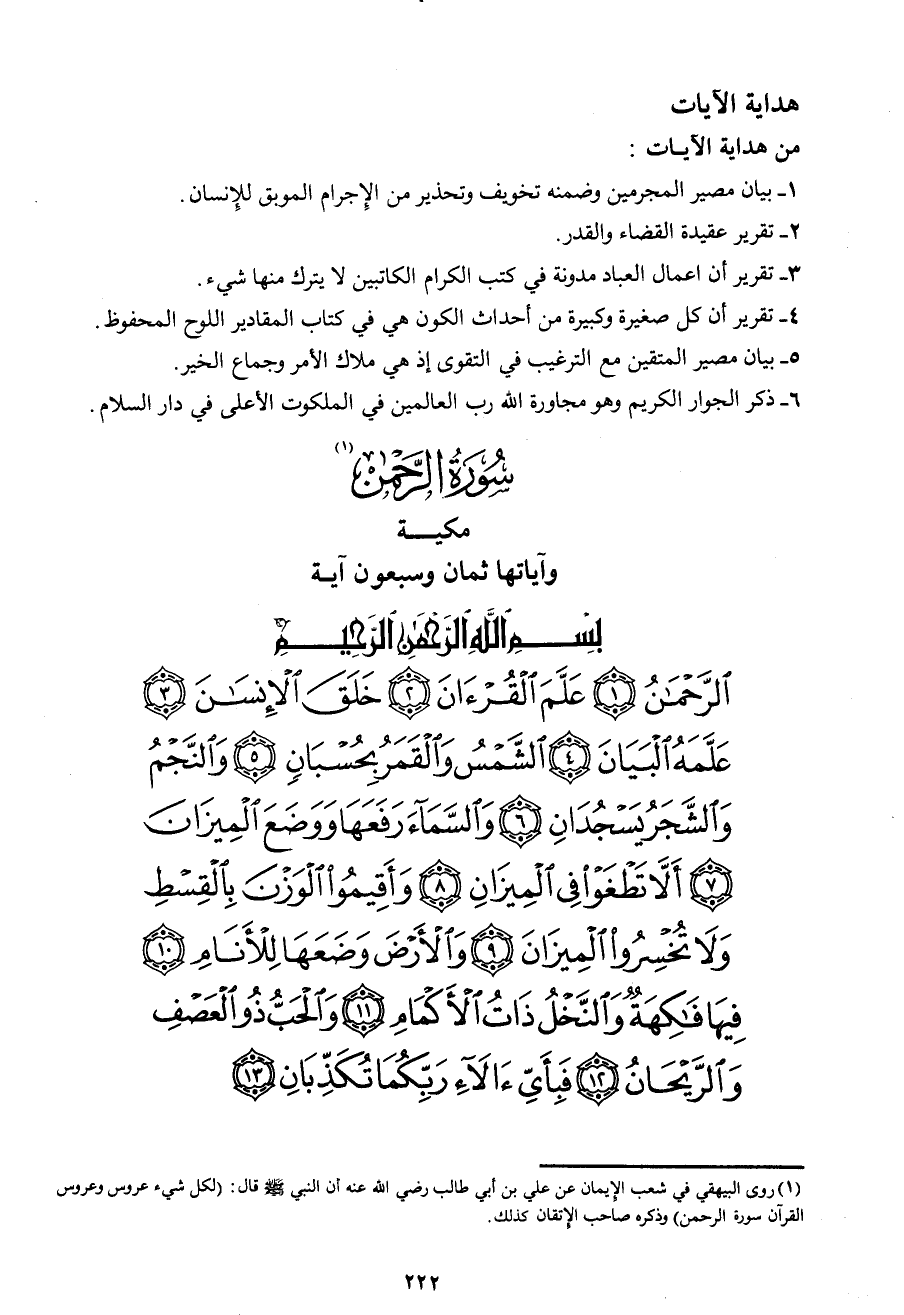 هداية الآيات
من هداية الآيـات :
١ـ بيان مصير المجرمين وضمنه تخويف وتحذير من الإجرام الموبق للإنسان.
٢ـ تقرير عقيدة القضاء والقدر.
٣ـ تقرير أن اعمال العباد مدونة في كتب الكرام الكاتبين لا يترك منها شيء.
٤ـ تقرير أن كل صغيرة وكبيرة من أحداث الكون هي في كتاب المقادير اللوح المحفوظ.
٥ـ بيان مصير المتقين مع الترغيب في التقوى إذ هي ملاك الأمر وجماع الخير.
٦ـ ذكر الجوار الكريم وهو مجاورة الله رب العالمين في الملكوت الأعلى في دار السلام.
سُورَةُ الرَّحْمَٰن (١)
مكيـــة
وآياتها ثمان وسبعون آيـة
بِسْمِ ٱللَّهِ ٱلرَّحْمَٰنِ ٱلرَّحِيمِ
ٱلرَّحْمَٰنُ ١ عَلَّمَ ٱلْقُرْءَانَ ٢ خَلَقَ ٱلْإِنسَٰنَ ٣
عَلَّمَهُ ٱلْبَيَانَ ٤ ٱلشَّمْسُ وَٱلْقَمَرُ بِحُسْبَانٍ ٥ وَٱلنَّجْمُ
وَٱلشَّجَرُ يَسْجُدَانِ ٦ وَٱلسَّمَآءَ رَفَعَهَا وَوَضَعَ ٱلْمِيزَانَ
٧ أَلَّا تَطْغَوْا۟ فِى ٱلْمِيزَانِ ٨ وَأَقِيمُوا۟ ٱلْوَزْنَ بِٱلْقِسْطِ
وَلَا تُخْسِرُوا۟ ٱلْمِيزَانَ ٩ وَٱلْأَرْضَ وَضَعَهَا لِلْأَنَامِ ١٠
فِيهَا فَٰكِهَةٌ وَٱلنَّخْلُ ذَاتُ ٱلْأَكْمَامِ ١١ وَٱلْحَبُّ ذُو ٱلْعَصْفِ
وَٱلرَّيْحَانُ ١٢ فَبِأَىِّ ءَالَآءِ رَبِّكُمَا تُكَذِّبَانِ ١٣
(١) روى البيهقي في شعب الإيمان عن علي بن أبي طالب رضي الله عنه أن النبي ﷺ قال: (لكل شيء عروس وعروس
القرآن سورة الرحمن) وذكره صاحب الإتقان كذلك.
٢٢٢